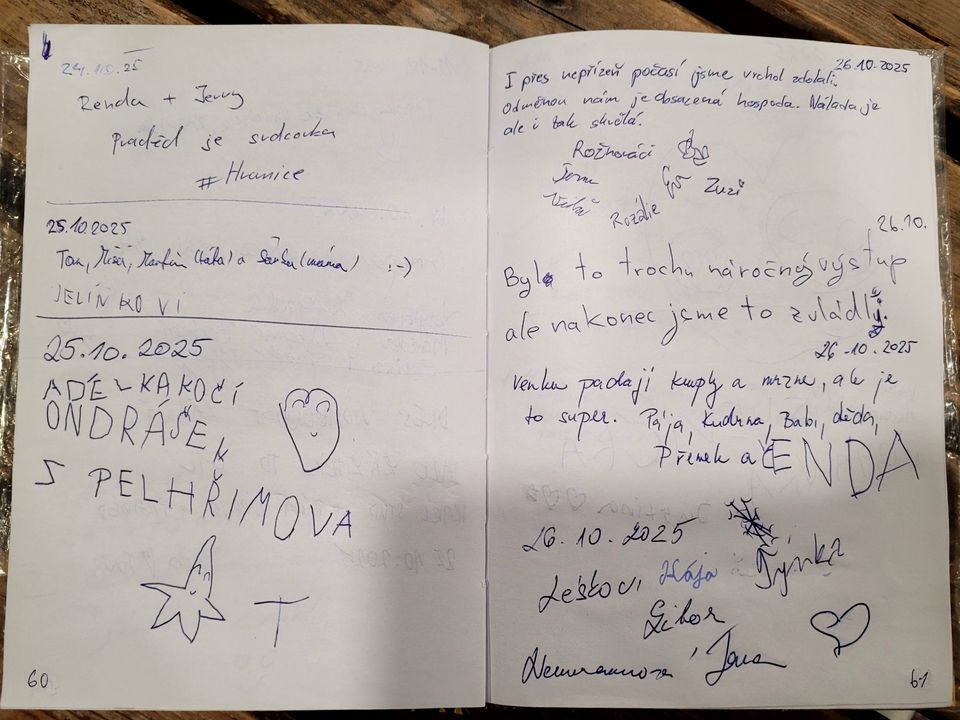 24.10.25
Renda + Jerry
Praděd je srdcovka
#Hranice
25.10.2025
Tom, Míša, Martin (táta) a Šárka (máma) :-)
JELÍNKOVI
25.10.2025
ADÉLKA KOČÍ
ONDRÁŠEK
S PELHŘIMOVA
T
60
26.10.2025
I přes nepřízeň počasí jsme vrchol zdolali.
Odměnou nám je obsazená hospoda. Nálada je
ale i tak skvělá.
Rožnováci
Zuzi
Rozálie
26.10.
Bylo to trochu náročnej výstup
ale nakonec jsme to zvládli.
26.10.2025
Venku padají kroupy a mrzne, ale je
to super. Pája, Kudrna, Babi, děda,
Přemek a ČENDA
26.10.2025
Týnka
Leškovi Kája
Libor
Jana
61